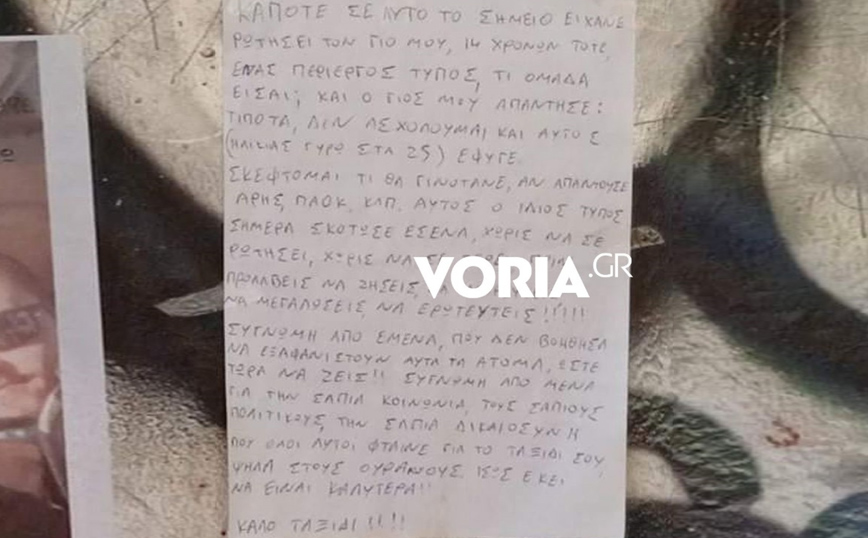 ΚΑΠΟΤΕ ΣΕ ΑΥΤΟ ΤΟ ΣΗΜΕΙΟ ΕΙΧΑΝΕ
ΡΩΤΗΣΕΙ ΤΟΝ ΓΙΟ ΜΟΥ, 14 ΧΡΟΝΩΝ ΤΟΤΕ,
ΕΝΑΣ ΠΕΡΙΕΡΓΟΣ ΤΥΠΟΣ, ΤΙ ΟΜΑΔΑ
ΕΙΣΑΙ; ΚΑΙ Ο ΓΙΟΣ ΜΟΥ ΑΠΑΝΤΗΣΕ:
ΤΙΠΟΤΑ, ΔΕΝ ΑΣΧΟΛΟΥΜΑΙ ΚΑΙ ΑΥΤΟΣ
(ΗΛΙΚΙΑΣ ΓΥΡΩ ΣΤΑ 25) ΕΦΥΓΕ
ΣΚΕΦΤΟΜΑΙ ΤΙ ΘΑ ΓΙΝΟΤΑΝΕ, ΑΝ ΑΠΑΝΤΟΥΣΕ
ΑΡΗΣ, ΠΑΟΚ ΚΛΠ. ΑΥΤΟΣ Ο ΙΔΙΟΣ ΤΥΠΟΣ
ΣΗΜΕΡΑ ΣΚΟΤΩΣΕ ΕΣΕΝΑ, ΧΩΡΙΣ ΝΑ ΣΕ
ΡΩΤΗΣΕΙ, ΧΩΡΙΣ ΝΑ
VORIA.GR
ΠΡΟΛΑΒΕΙΣ ΝΑ ΖΗΣΕΙΣ,
ΝΑ ΜΕΓΑΛΩΣΕΙΣ, ΝΑ ΕΡΩΤΕΥΤΕΙΣ!!!!!
ΣΥΓΝΩΜΗ ΑΠΟ ΕΜΕΝΑ, ΠΟΥ ΔΕΝ ΒΟΗΘΗΣΑ
ΝΑ ΕΞΑΦΑΝΙΣΤΟΥΝ ΑΥΤΑ ΤΑ ΑΤΟΜΑ, ΩΣΤΕ
ΤΩΡΑ ΝΑ ΖΕΙΣ!! ΣΥΓΝΩΜΗ ΑΠΟ ΜΕΝΑ
ΓΙΑ ΤΗΝ ΣΑΠΙΑ ΚΟΙΝΩΝΙΑ, ΤΟΥΣ ΣΑΠΙΟΥΣ
ΠΟΛΙΤΙΚΟΥΣ, ΤΗΝ ΣΑΠΙΑ ΔΙΚΑΙΟΣΥΝΗ
ΠΟΥ ΟΛΟΙ ΑΥΤΟΙ ΦΤΑΙΝΕ ΓΙΑ ΤΟ ΤΑΞΙΔΙ ΣΟΥ
ΨΗΛΑ ΣΤΟΥΣ ΟΥΡΑΝΟΥΣ. ΙΣΩΣ ΕΚΕΙ
ΝΑ ΕΙΝΑΙ ΚΑΛΥΤΕΡΑ!!
ΚΑΛΟ ΤΑΞΙΔΙ!!!!